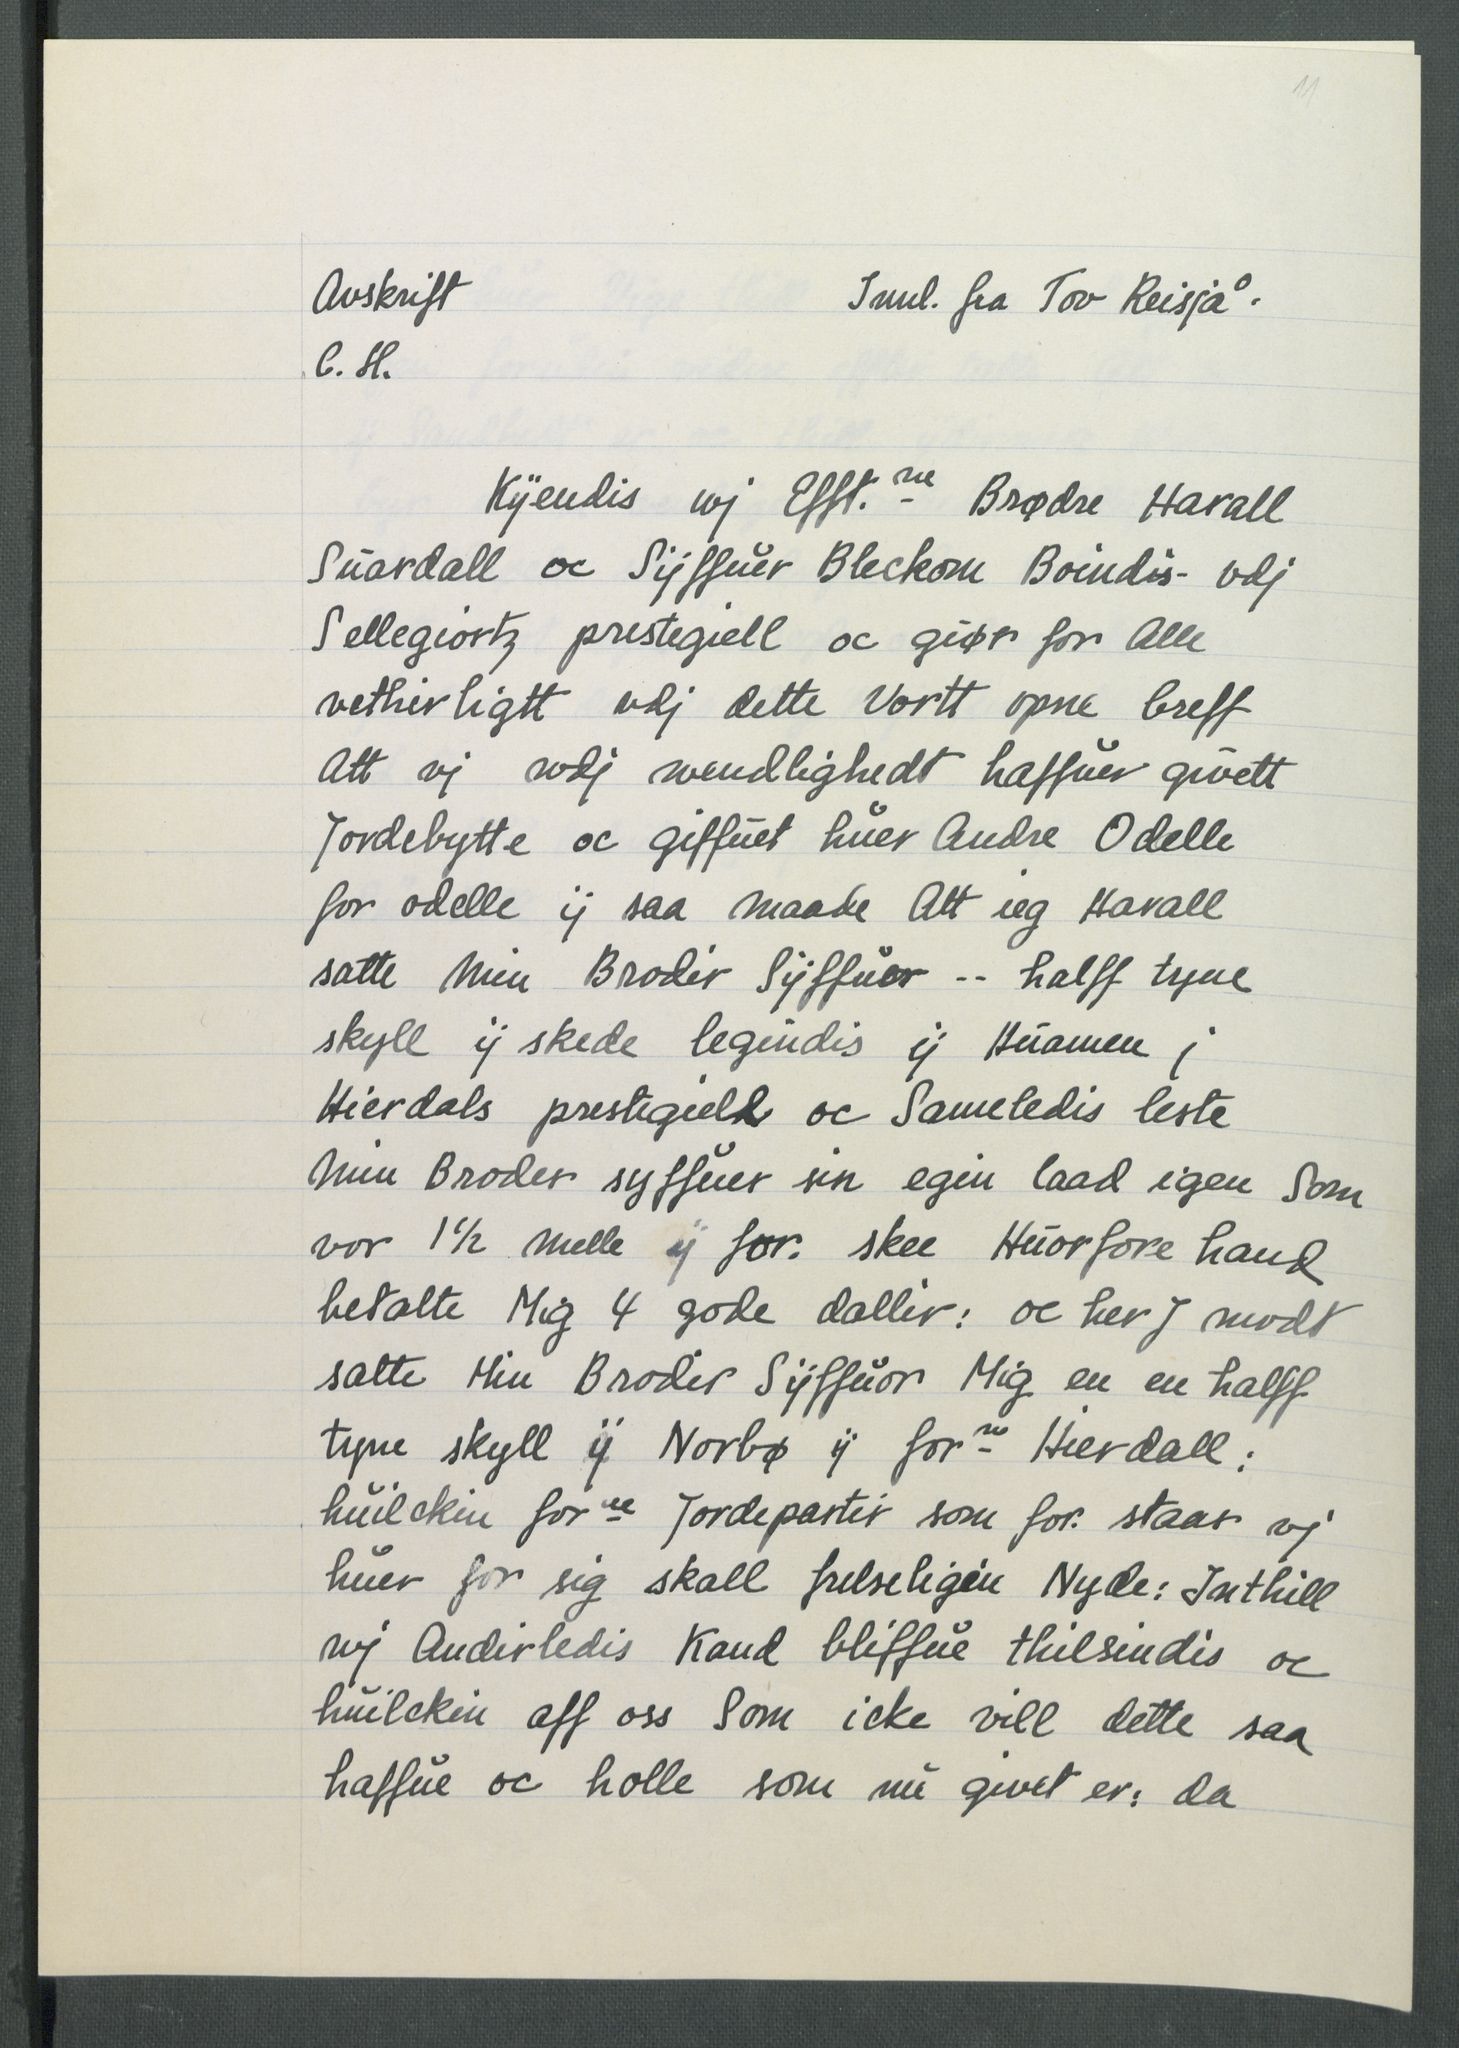 11
Avskrift Innl. fra Tov Reisjå.
C. H.
Kÿendis wj Efft.ne Brødre Harall
Suardall oc Sÿffuer Bleckom Boindis- vdj
Sellegiortz prestegiell oc giør for Alle
vetherligtt vdj dette Vortt opne breff
Att vj wdj wendlighedt haffuer givett
Jordebytte oc giffuet huer Andre Odelle
for odelle ÿ saa maade Att ieg Harall
satte Min Broder Sÿffuor -- halff tyne
skyll ÿ skede legindis ÿ Huamen j
Hierdals prestegield oc Sameledis leste
Min Broder syffuer sin egin laad igen Som
vor 1 1/2 melle ÿ for. skee Huorfore hand
betalte Mig 4 gode daller: oc her J modt
satte Min Broder Sÿffuor Mig en en halff
tyne skyll ÿ Norbø ÿ forne Hierdall:
huilckin forne Jordeparter som for. staar vj
huer for sig skall frelseligen Nyde: Inthill
wj Anderledis Kand bliffue thilsindis oc
huilckin aff oss Som icke vill dette saa
haffue oc holle som nu givet er: da